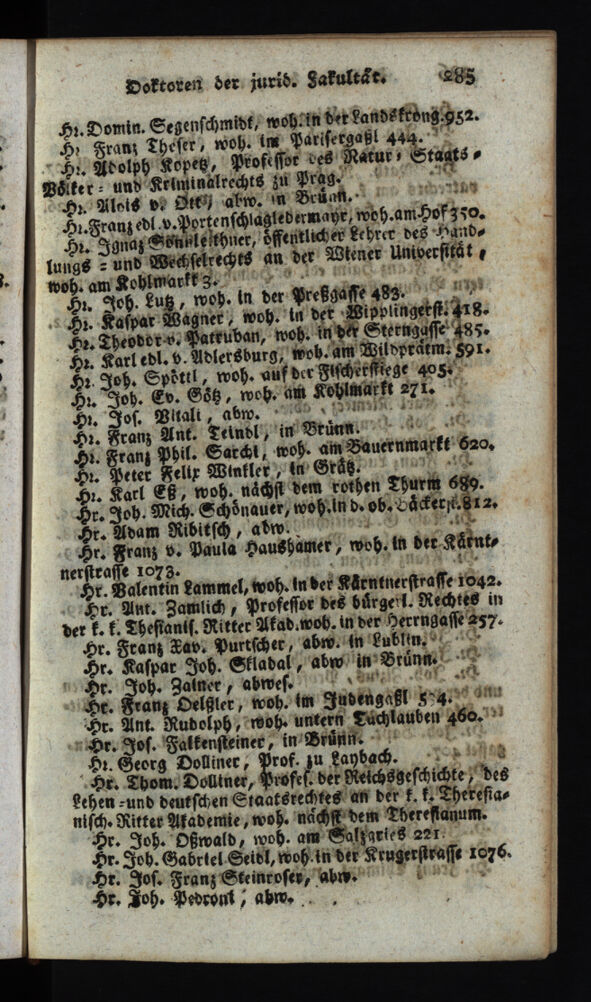 Doktoren der jurid. Fakultät. 285
Hr. Domin. Segenschmidt, woh. in der Landskrong. 952.
Hr. Franz Theser, woh. im Parisergaßl 444.
Hr. Adolph Kopetz, Professor des Natur- Staats-
Völker- und Kriminalrechts zu Prag.
Hr. Alois v. Ott, abw. in Brünn.
Hr. Franz edl. v. Portenschlagledermayr, woh. am Hof 350.
Hr. Ignaz Sonnleithner, öffentlicher Lehrer des Hand-
lungs- und Wechselrechts an der Wiener Universität,
woh. am Kohlmarkt 3.
Hr. Joh. Lutz, woh. in der Preßgasse 483.
Hr. Kaspar Wagner, woh. in der Wipplingerst. 418.
Hr. Theodor v. Patruban, woh. in der Sterngasse 485.
Hr. Karl edl. v. Adlersburg, woh. am Wildprätm. 591.
Hr. Joh. Spöttl, woh. auf der Fischerstiege 405.
Hr. Joh. Ev. Götz, woh. am Kohlmarkt 271.
Hr. Jos. Vitali, abw.
Hr. Franz Ant. Teindl, in Brünn.
Hr. Franz Phil. Sarchi, woh. am Bauernmarkt 620.
Hr. Peter Felix Winkler, in Grätz.
Hr. Karl Eß, woh. nächst dem rothen Thurm 689.
Hr. Joh. Mich. Schönauer, woh. in d. ob. Bäckerst. 812.
Hr. Adam Ribitsch, abw.
Hr. Franz v. Paula Haushamer, woh. in der Kärnt-
nerstrasse 1073.
Hr. Valentin Lammel, woh. in der Kärntnerstrasse 1042.
Hr. Ant. Zamlich, Professor des bürgerl. Rechtes in
der k. k. Thesianis. Ritter Akad. woh. in der Herrngasse 257.
Hr. Franz Xav. Purtscher, abw. in Lublin.
Hr. Kaspar Joh. Skladal, abw in Brünn.
Hr. Joh. Zainer, abwes.
Hr. Franz Oelßler, woh. im Judengaßl
Hr. Ant. Rudolph, woh. untern Tuchlauben 460.
Hr. Jos. Falkensteiner, in Brünn.
Hr. Georg Dolliner, Prof. zu Laybach.
Hr. Thom. Dolliner, Profes. der Reichsgeschichte, des
Lehen- und deutschen Staatsrechtes an der k. k. Theresia-
nisch. Ritter Akademie, woh. nächst dem Theresianum.
Hr. Joh. Oßwald, woh. am Salzgries 221.
Hr. Joh. Gabriel Seidl, woh. in der Krugerstrasse 1076.
Hr. Jos. Franz Steinroser, abw.
Hr. Joh. Pedroni, abw.